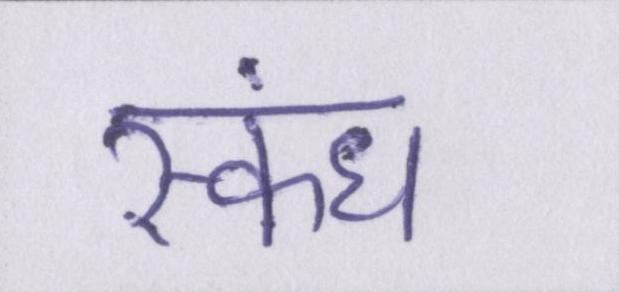 स्कंध